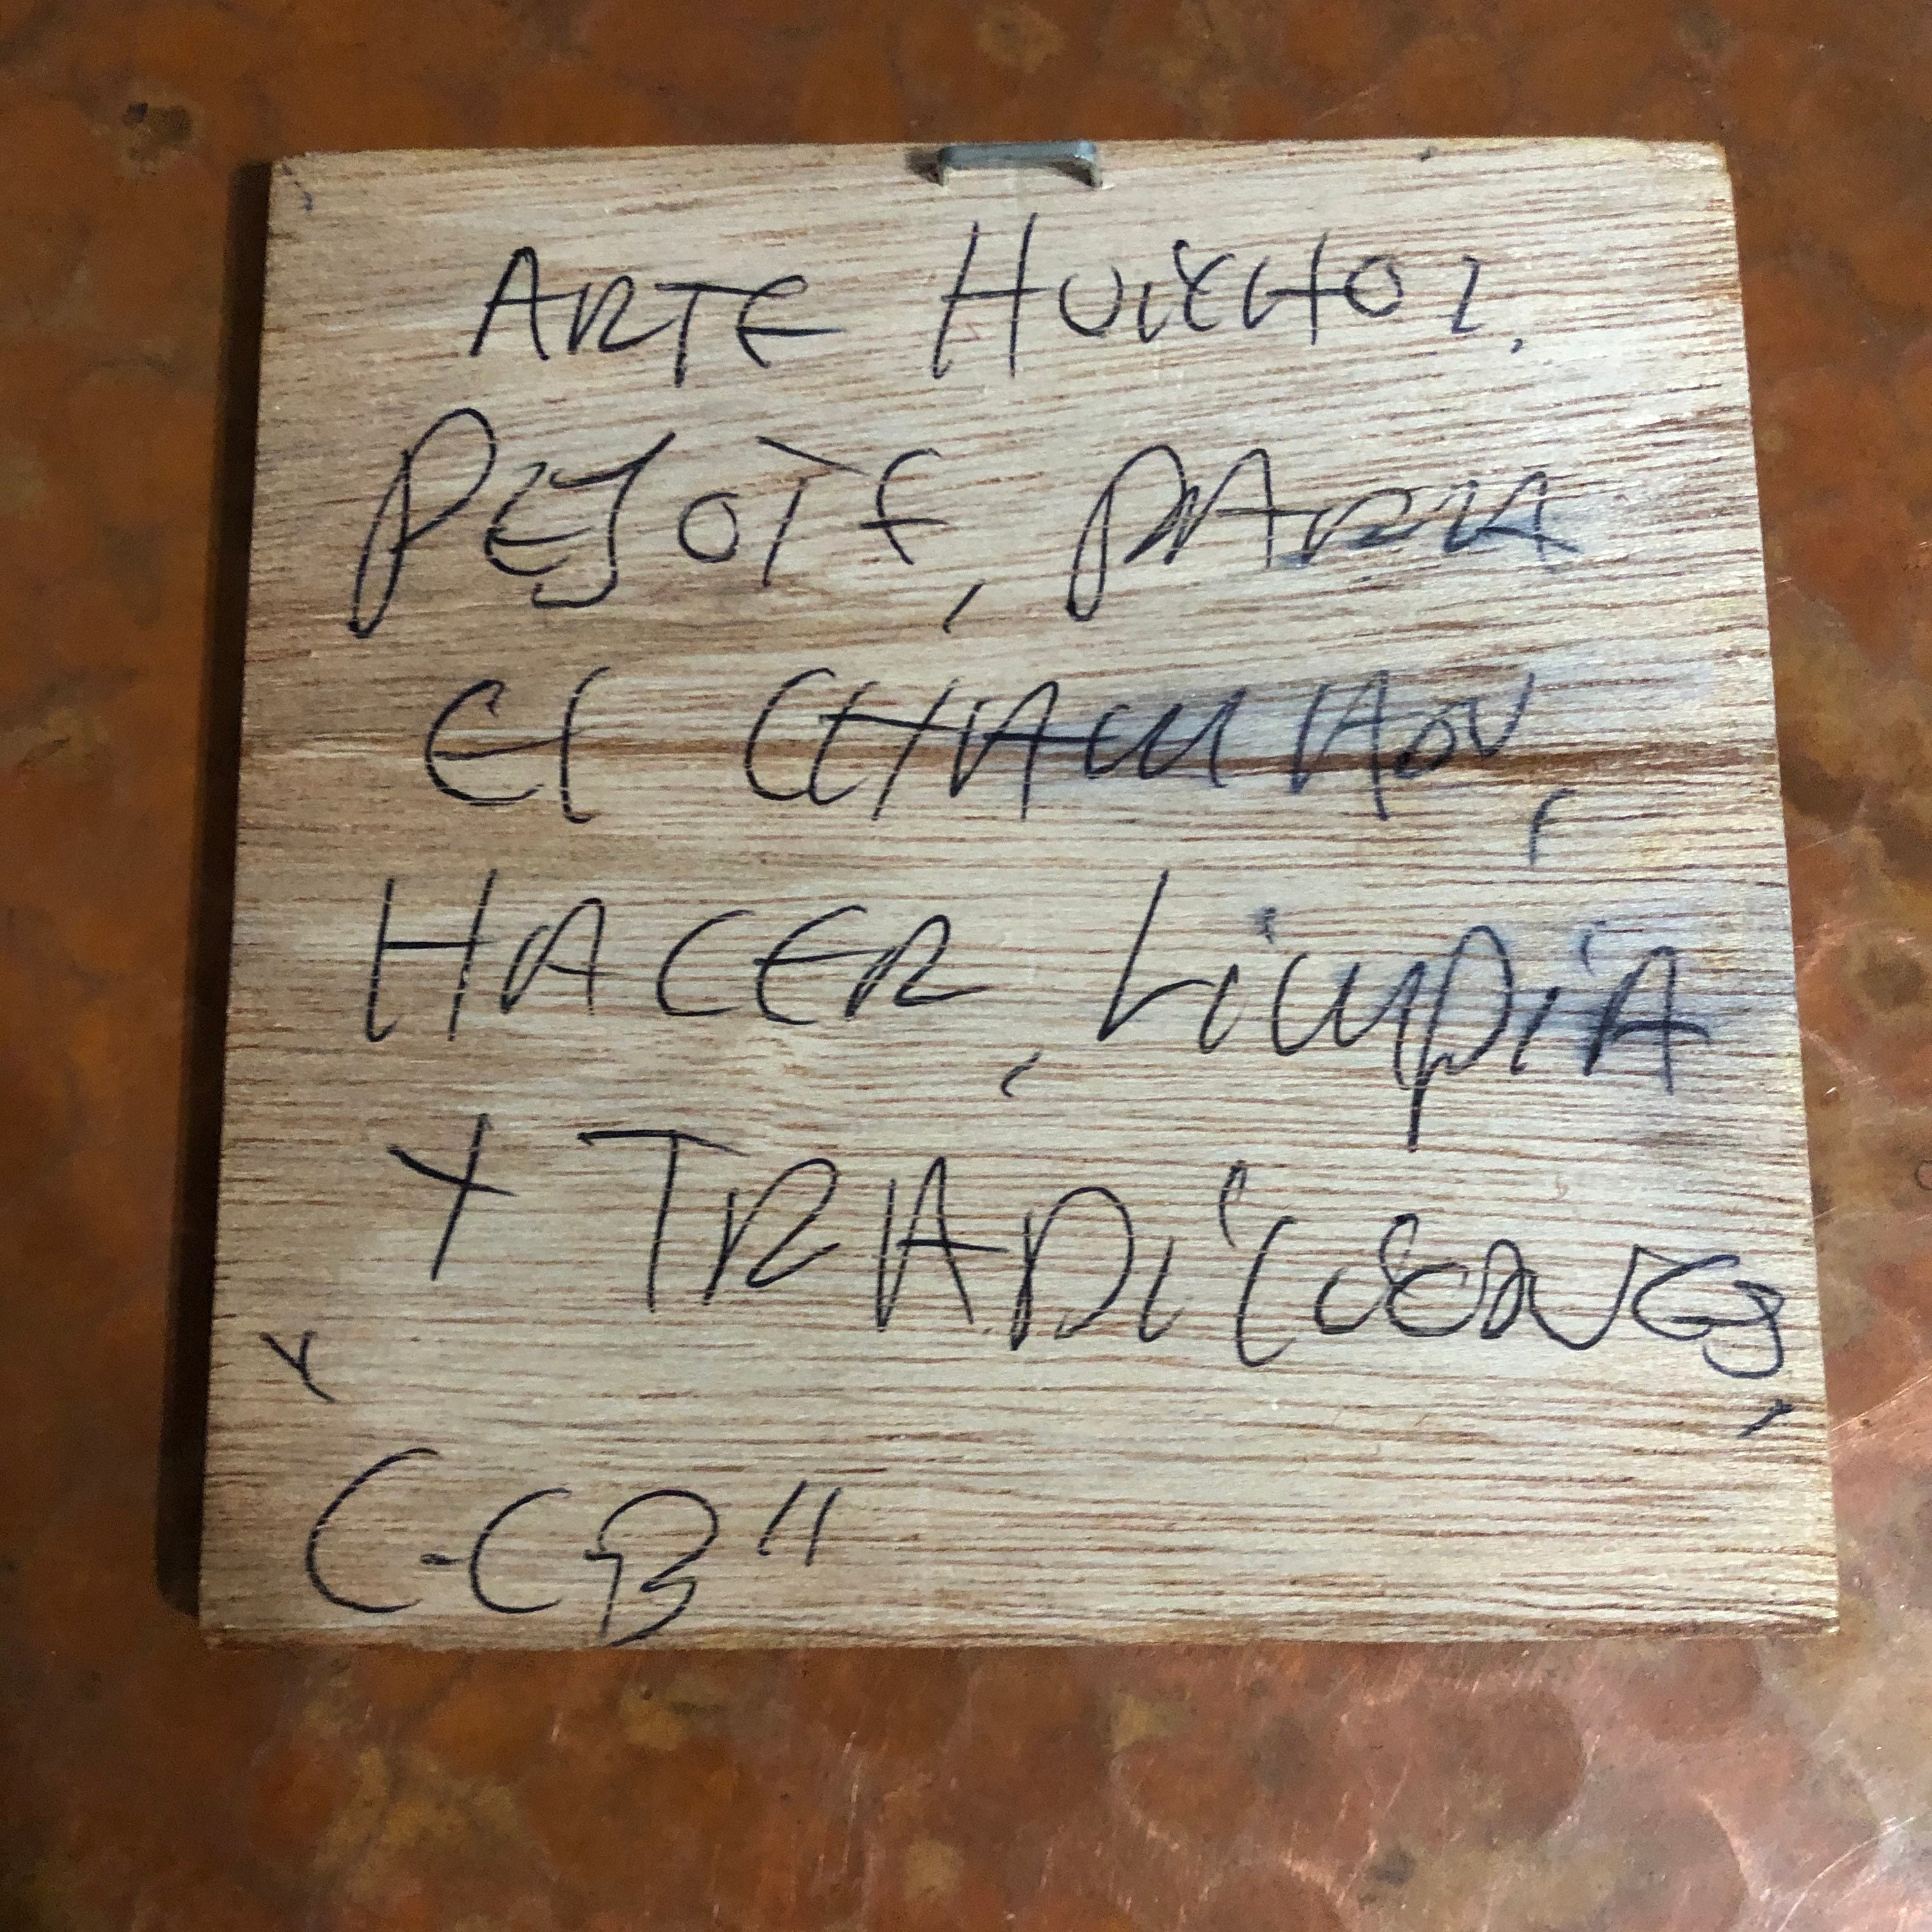 ARTE HUICHOL.
PEYOTE, PARA
EL CHAMAN,
HACER, LIMPIA
Y TRADICIONES,
C-CB"